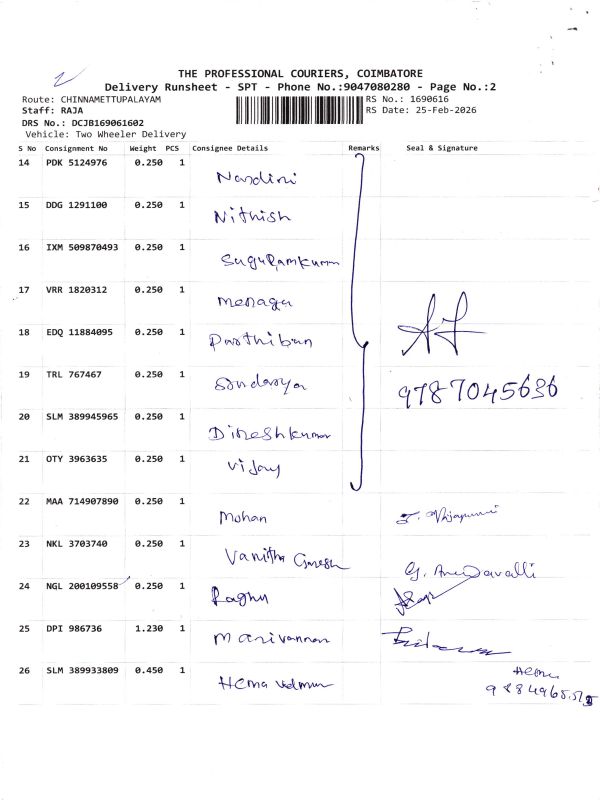 THE PROFESSIONAL COURIERS, COIMBATORE
Delivery Runsheet - SPT - Phone No.:9047080280 - Page No.:2
Route: CHINNAMETTUPALAYAM RS No.: 1690616
Staff: RAJA RS Date: 25-Feb-2026
DRS No.: DCJB169061602
Vehicle: Two Wheeler Delivery
S No Consignment No Weight PCS Consignee Details Remarks Seal & Signature
14 PDK 5124976 0.250 1
Nandini
15 DDG 1291100 0.250 1
Nithish
16 IXM 509870493 0.250 1
Suguramkumar
17 VRR 1820312 0.250 1
Menaga
18 EDQ 11884095 0.250 1
Parthiban
19 TRL 767467 0.250 1
Soudarya 9787045636
20 SLM 389945965 0.250 1
Dineshkumar
21 OTY 3963635 0.250 1
Vijay
22 MAA 714907890 0.250 1
Mohan
23 NKL 3703740 0.250 1
Vanitha Ganesh
24 NGL 200109558 0.250 1
Raghu
25 DPI 986736 1.230 1
Marivannan
26 SLM 389933809 0.450 1
Hema